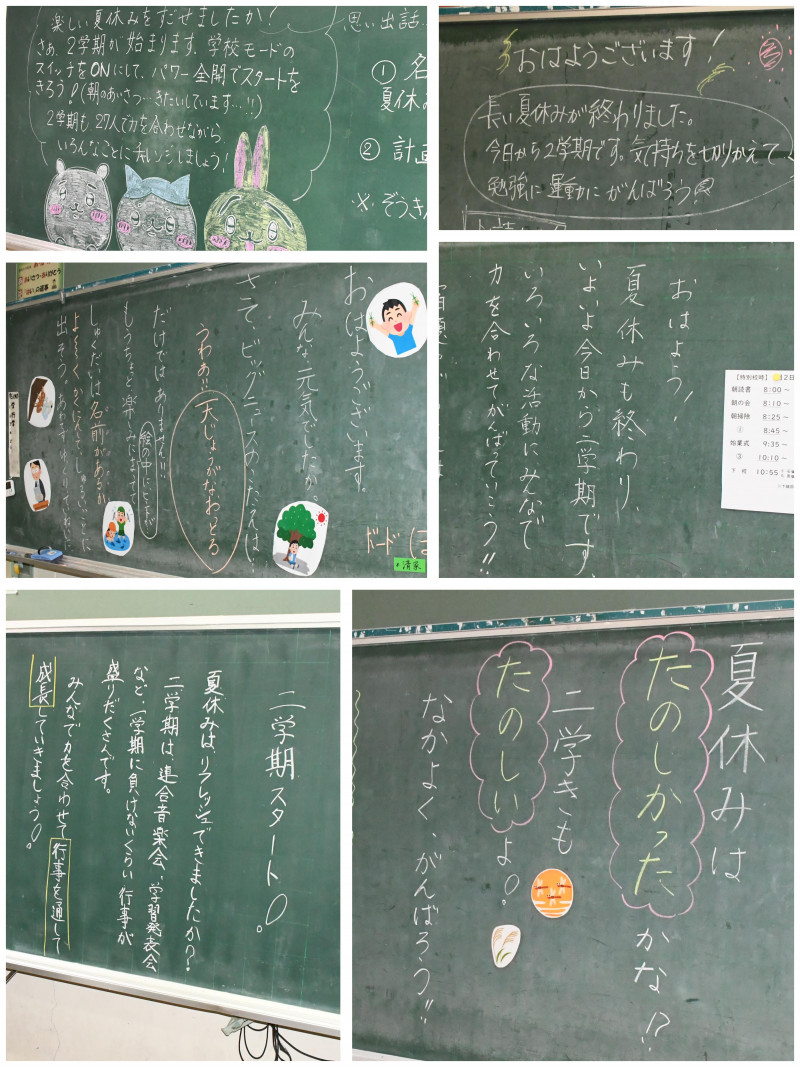 楽しい夏休みをすごせましたか!
さぁ、2学期が始まります。学校モードの
スイッチをONにして、パワー全開でスタートを
きろう!(朝のあいさつ…きたいしています…!!)
2学期も27人で力を合わせながら、
いろんなことにチャレンジしましょう!
思い出話…
① 名
夏休み
② 計画
※ぞうきん
おはようございます!
長い夏休みが終わりました。
今日から2学期です。気持ちを切りかえて
勉強に運動にがんばろう!
おはようございます。
みんな元気でしたか。
さて、ビッグニュースのこたえは…
うわぁ!!天じょうがなおってる
だけではありません!!
もうちょっと楽しみにまってて
しゅくだいは名前があるか
清家
おはよう!
夏休みも終わり、
いよいよ今日から二学期です。
いろいろな活動にみんなで
力を合わせてがんばっていこう!!
【特別校時】
朝読書 8:00~
朝の会 8:10~
朝掃除 8:25~
① 8:45~
始業式 9:35~
③ 10:10~
下校 10:55
二学期スタート!
夏休みは、リフレッシュできましたか?
二学期は、連合音楽会、学習発表会
など、一学期に負けないくらい行事が
盛りだくさんです。
みんなで力を合わせて行事を通して
成長していきましょう!
夏休みは
たのしかったかな!?
二学きも
たのしいよ!
なかよく、がんばろう!!